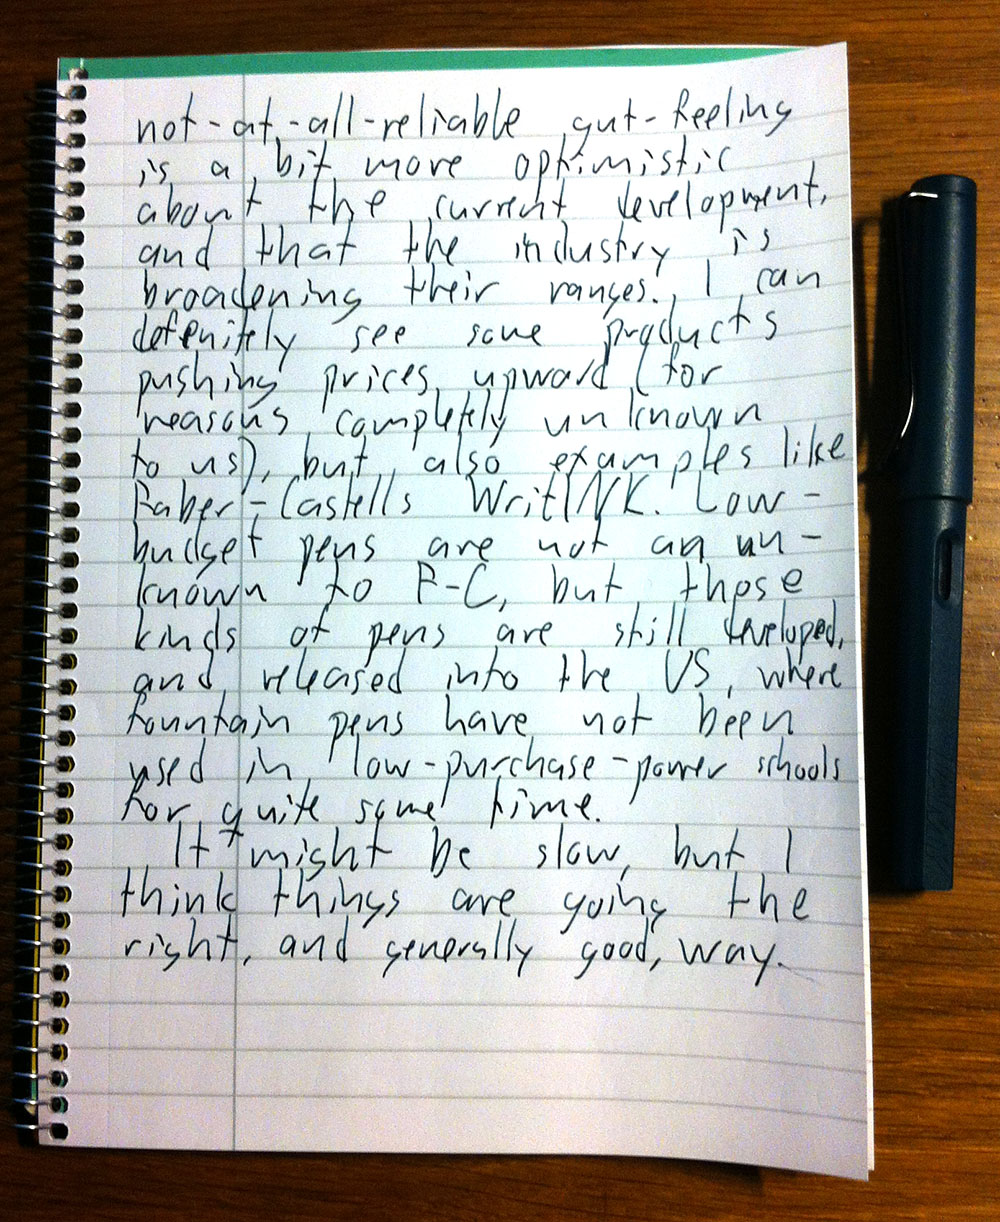 not-at-all-reliable gut-feeling
is a bit more optimistic
about the current development,
and that the industry is
broadening their ranges. I can
defenitely see some products
pushing prices upward (for
reasons completely unknown
to us), but also examples like
Faber-Castells WritINK. Low-
budget pens are not an un-
known to F-C, but those
kinds of pens are still developed,
and released into the US, where
fountain pens have not been
used in low-purchase-power schools
for quite some time.
It might be slow, but I
think things are going the
right, and generally good, way.